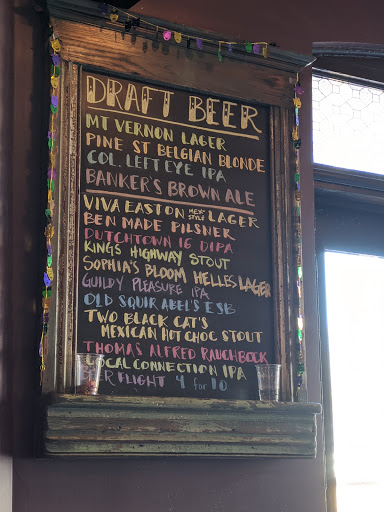 DRAFT BEER
MT VERNON LAGER
PINE ST BELGIAN BLONDE
COL. LEFT EYE IPA
BANKER'S BROWN ALE
VIVA EASTON MEX-STYLE LAGER
BEN MADE PILSNER
DUTCHTOWN 16 DIPA
KING'S HIGHWAY STOUT
SOPHIA'S BLOOM HELLES LAGER
GUILDY PLEASURE IPA
OLD SQUIR ABEL'S ESB
TWO BLACK CAT'S
MEXICAN HOT CHOC STOUT
THOMAS ALFRED RAUCHBOCK
LOCAL CONNECTION IPA
FLIGHT 4 for 10